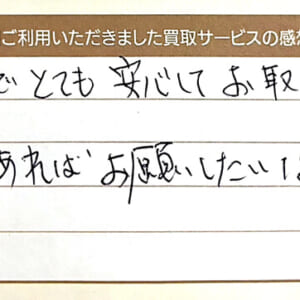 ご利用いただきました買取サービスの感
でとても安心してお取
あればお願いしたい